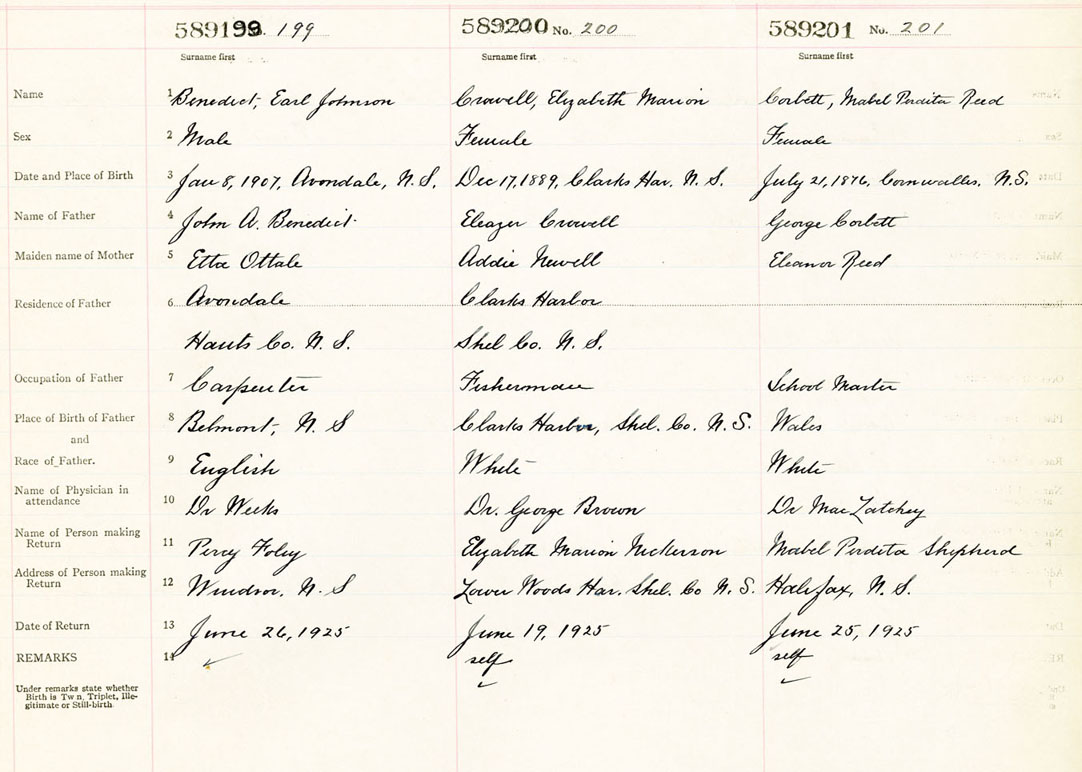 589199 No. 199 589200 No. 200 589201 No. 201
Surname first Surname first Surname first
Name 1 Benedict, Earl Johnson Crowell, Elizabeth Marion Corbett, Mabel Perdita Reed
Sex 2 Male Female Female
Date and Place of Birth 3 Jan 8, 1907, Avondale, N.S. Dec 17, 1889, Clarks Har. N.S. July 21, 1876, Cornwallis, N.S.
Name of Father 4 John A. Benedict Eleazer Crowell George Corbett
Maiden name of Mother 5 Etta Addie Newell Eleanor Reed
Residence of Father 6 Avondale Clarks Harbor
Hants Co. N.S. Shel Co. N.S.
Occupation of Father 7 Carpenter Fisherman School Master
Place of Birth of Father 8 Belmont, N.S Clarks Harbor, Shel. Co. N.S. Wales
and
Race of Father. 9 English White White
Name of Physician in
attendance 10 Dr Weeks Dr. George Brown Dr
Name of Person making
Return 11 Percy Foley Elizabeth Marion Nickerson Mabel Perdita Shepherd
Address of Person making
Return 12 Windsor, N.S Lower Woods Har. Shel. Co N.S. Halifax, N.S.
Date of Return 13 June 26, 1925 June 19, 1925 June 25, 1925
REMARKS 14 self self
Under remarks state whether
Birth is Twin, Triplet, Ille-
gitimate or Still-birth